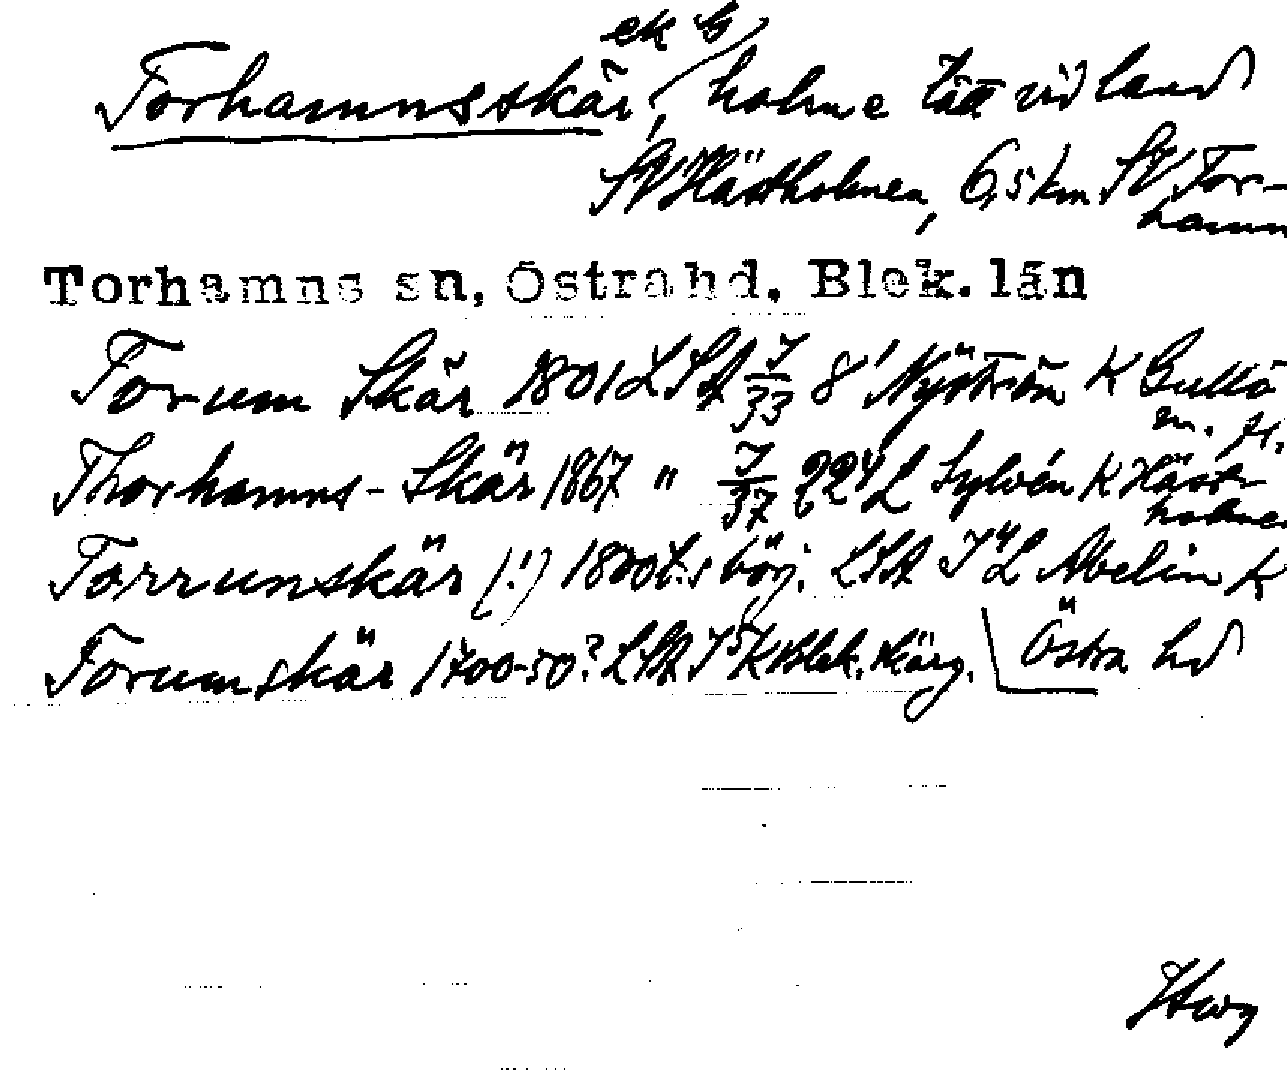 ek G
Torhamnsskär, holme tätt vid land
SV Hästholmen, 6,5 km SV Tor-
hamn
Torhamns sn, Östra hd. Blek. län
Torum Skär 1801 LSA J/33 8' Nyström K Gullö
m. fl.
Thorhamns-Skär 1867 " J/37 Sylvén K Häst-
holmen
Torrunskär (!) 1800t:s börj. LSA J Abelin K
Torumskär 1700-50? LSA J K Blek. skärg. Östra hd